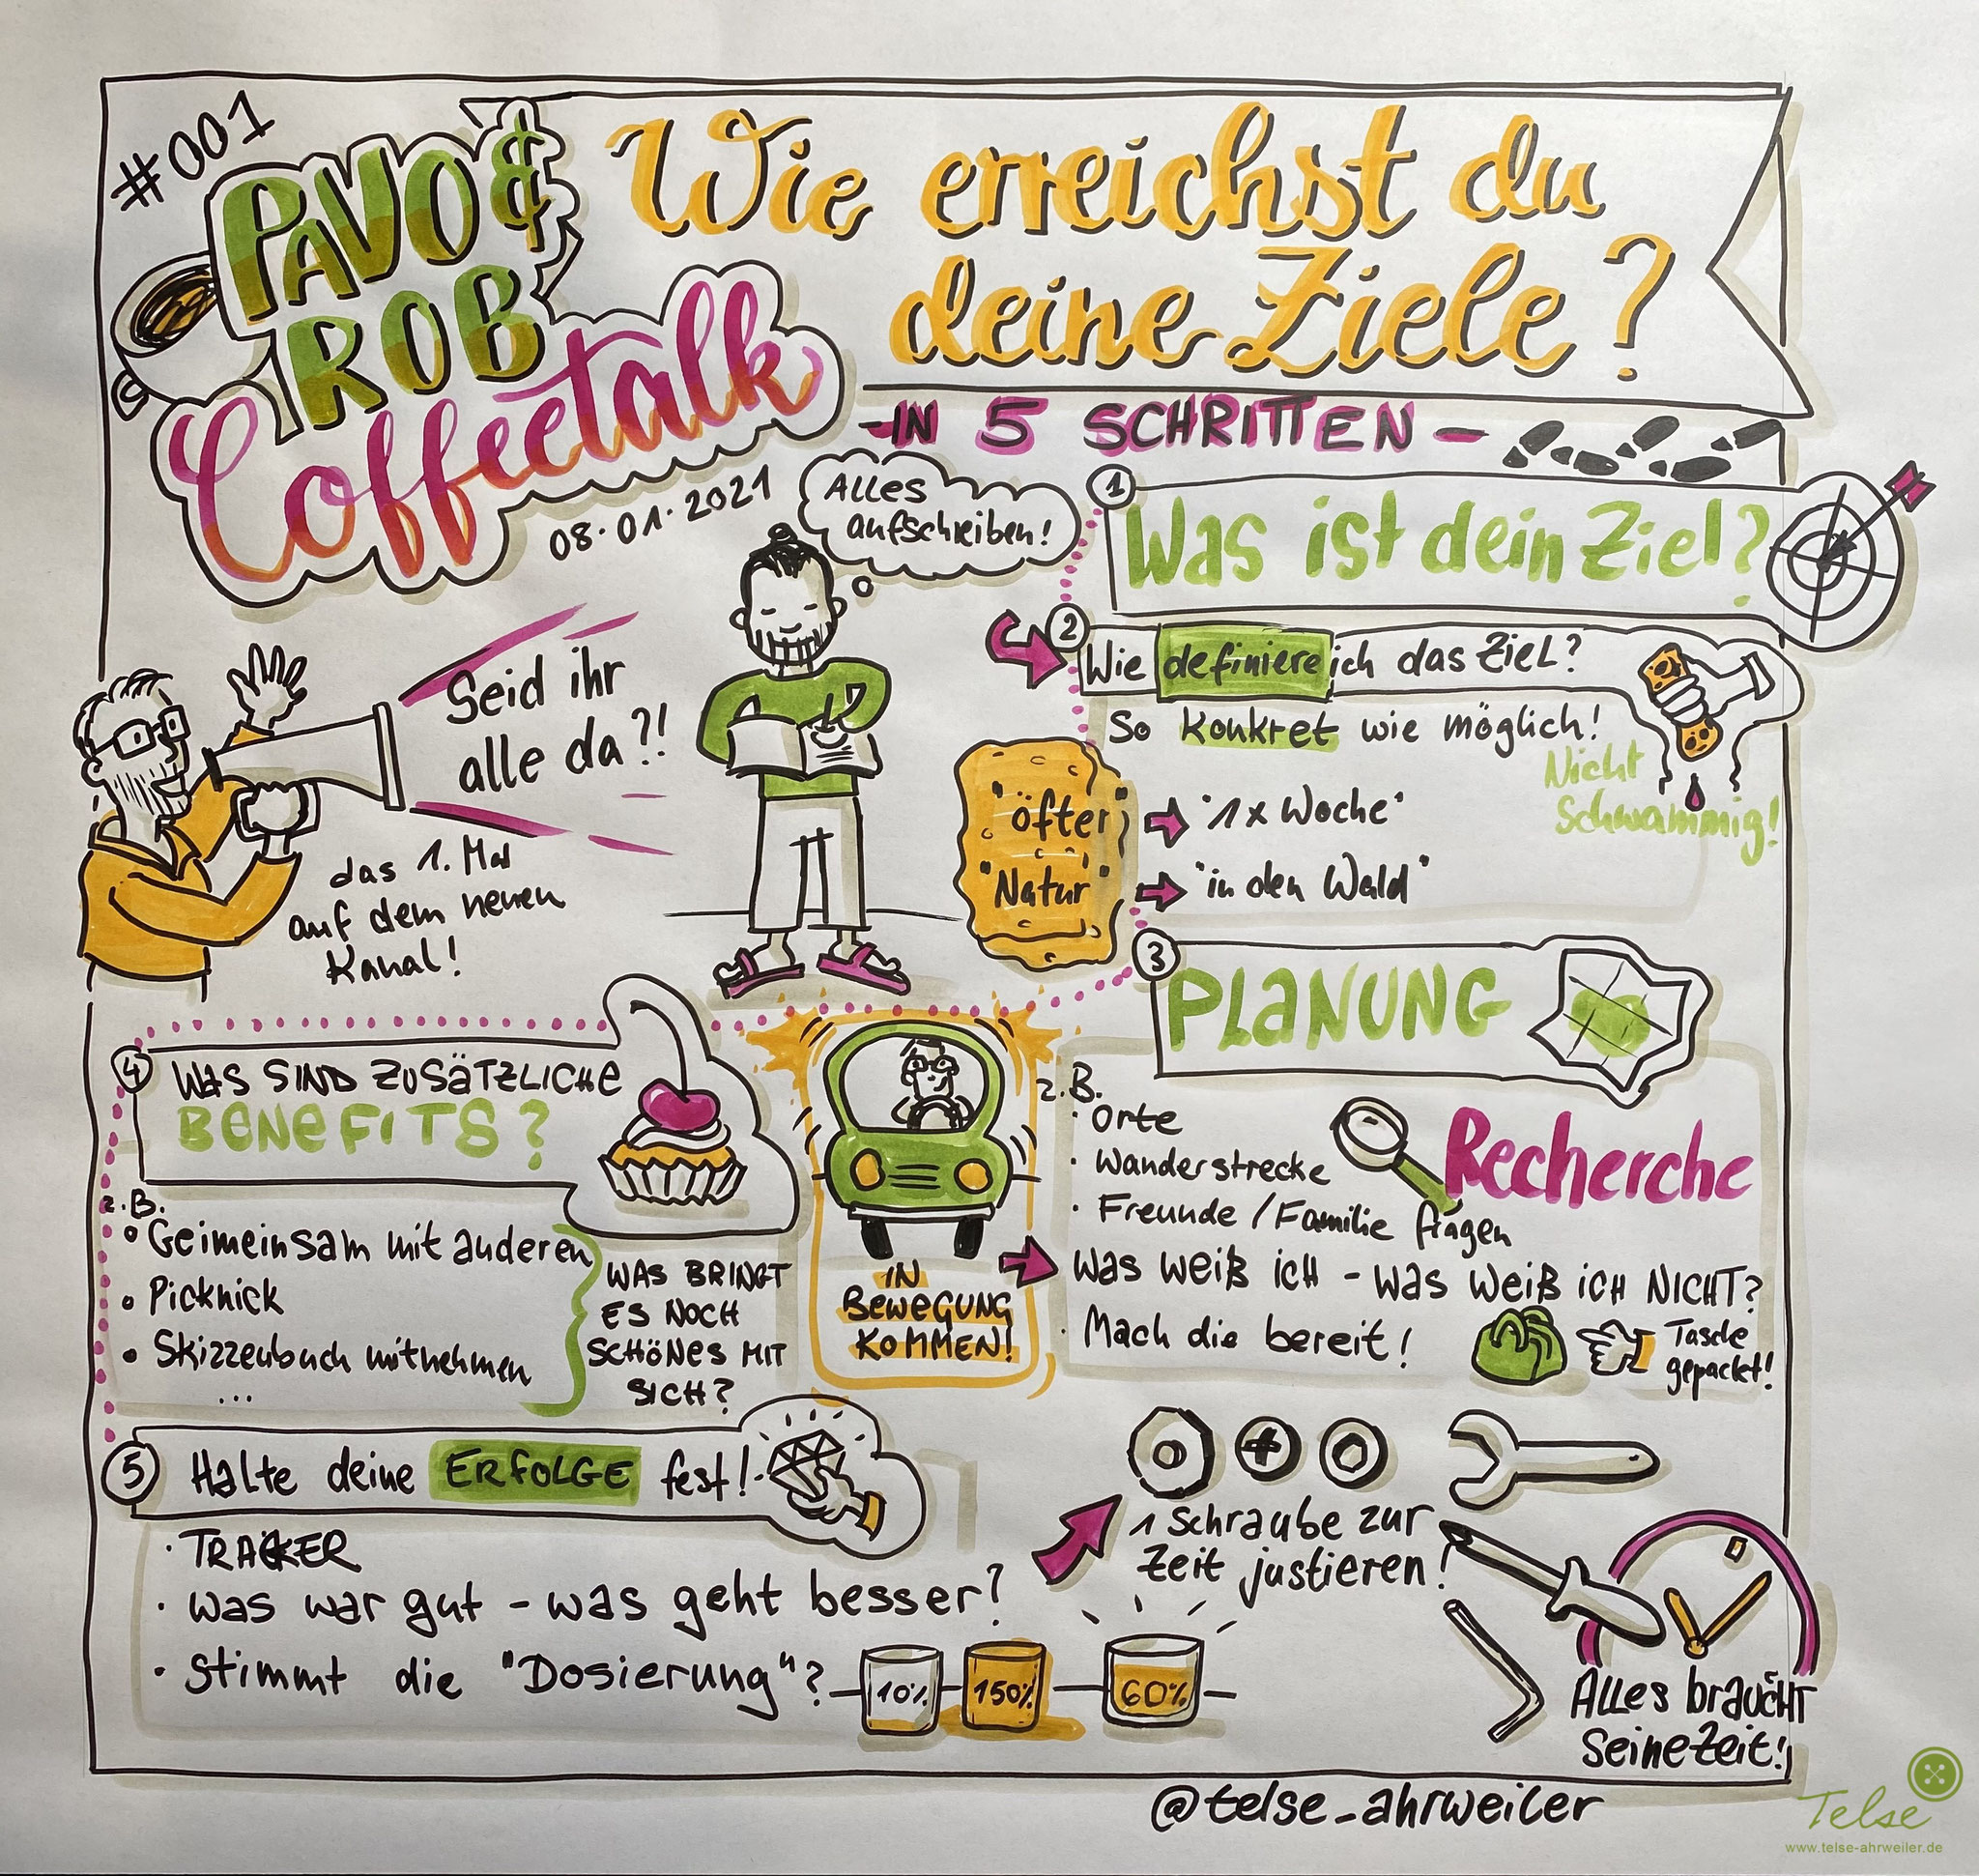 #001
PAVO &
ROB
Coffeetalk
08.01.2021
Wie erreichst du
deine Ziele?
- IN 5 SCHRITTEN -
Alles
aufschreiben!
Seid ihr
alle da?!
das 1. Mal
auf dem neuen
Kanal!
1
Was ist dein Ziel?
2
Wie definiere ich das Ziel?
So konkret wie möglich!
Nicht
Schwammig!
"öfter" "1x Woche"
"Natur" "in den Wald"
3
PLANUNG
z.B.
· Orte
· Wanderstrecke
· Freunde / Familie fragen
Recherche
Was weiß ich - was weiß ich NICHT?
· Mach die bereit!
Tasche
gepackt!
IN
BEWEGUNG
KOMMEN!
4
WAS SIND ZUSÄTZLICHE
BENEFITS?
z.B.
• Geimeinsam mit anderen
• Picknick
• Skizzenbuch mitnehmen
...
WAS BRINGT
ES NOCH
SCHÖNES MIT
SICH?
5
Halte deine ERFOLGE fest!
· TRACKER
· Was war gut - was geht besser?
· Stimmt die "Dosierung"?
10%
150%
60%
1 Schraube zur
Zeit justieren!
Alles braucht
seine Zeit!
@telse_ahrweiler
Telse
www.telse-ahrweiler.de